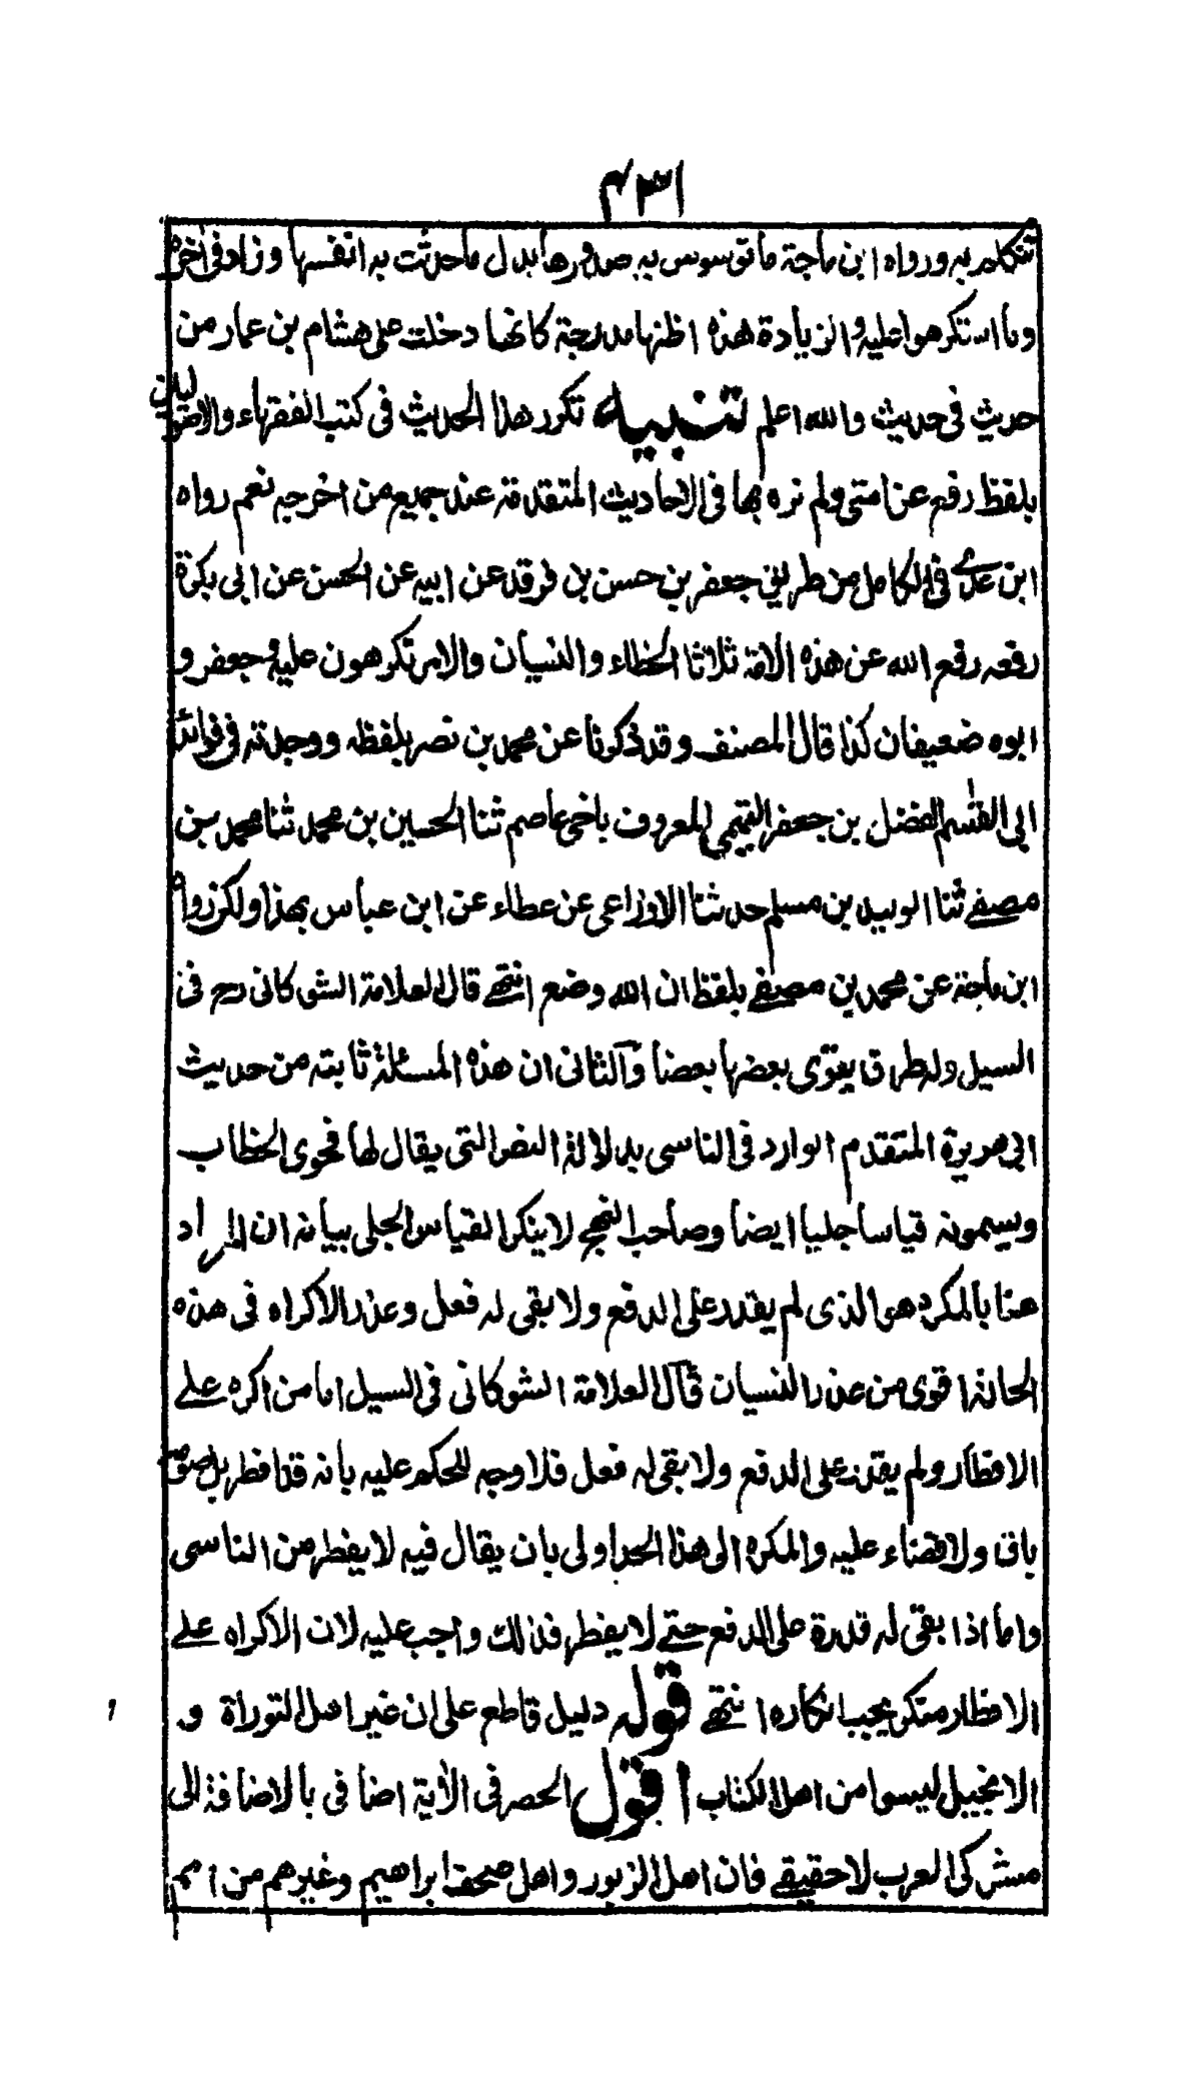 ٤٣١
تتكلم به ورواه ابن ماجة ما توسوس به صدورها بدل ما حدثت به انفسها وزاد فى اخره
وما استكرهوا عليه والزيادة هذه اظنها مدرجة كانها دخلت على هشام بن عمار من
حديث فى حديث والله اعلم تنبيه تكرر هذا الحديث فى كتب الفقهاء والاصوليين
بلفظ رفع عن امتى ولم نره بها فى الاحاديث المتقدمة عند جميع من اخرجه نعم رواه
ابن عدے فى الكامل من طريق جعفر بن حسن بن فرقد عن ابيه عن الحسن عن ابى بكرة
رفعه رفع الله عن هذه الامة ثلاثا الخطاء والنسيان والامر تكرهون عليه وجعفر و
ابوه ضعيفان كذا قال المصنف وقد ذكرنا عن محمد بن نصر بلفظه ووجدته فى فوائد
ابى القسم الفضل بن جعفر التيمي المعروف باخى عاصم ثنا الحسين بن محمد ثنا محمد بن
مصفے ثنا الوليد بن مسلم حدثنا الاوزاعى عن عطاء عن ابن عباس بهذا ولكن رواه
ابن ماجة عن محمد بن مصفے بلفظ ان الله وضع انتهے قال العلامة الشوكانى رح فى
السيل وله طرق يقوى بعضها بعضا والثانى ان هذه المسئلة ثابتة من حديث
ابى هريرة المتقدم الوارد فى الناسى بدلالة النص التى يقال لها فحوى الخطاب
ويسمونه قياسا جليا ايضا وصاحب النهج لا ينكر القياس الجلى بيانه ان المراد
هنا بالمكره هو الذى لم يقدر على الدفع ولا بقى له فعل وعذر الاكراه فى هذه
الحالة اقوى من عذر النسيان قال العلامة الشوكانى فى السيل اما من اكره علے
الافطار ولم يقدر على الدفع ولا بقى له فعل فلا وجه للحكم عليه بانه قد افطر بل صومه
باق ولا قضاء عليه والمكره الى هذا الحد اولى بان يقال فيه لا يفطر من الناسى
واما اذا بقى له قدرة على الدفع حتے لا يفطر فذلك واجب عليه لان الاكراه علے
الافطار منكر يجب انكاره انتهے قوله دليل قاطع على ان غير اهل التوراة و
الانجيل ليسوا من اهل الكتاب اقول الحصر فى الآية اضافى بالاضافة الى
مشركى العرب لا حقيقے فان اهل الزبور واهل صحف ابراهيم وغيرهم من امم